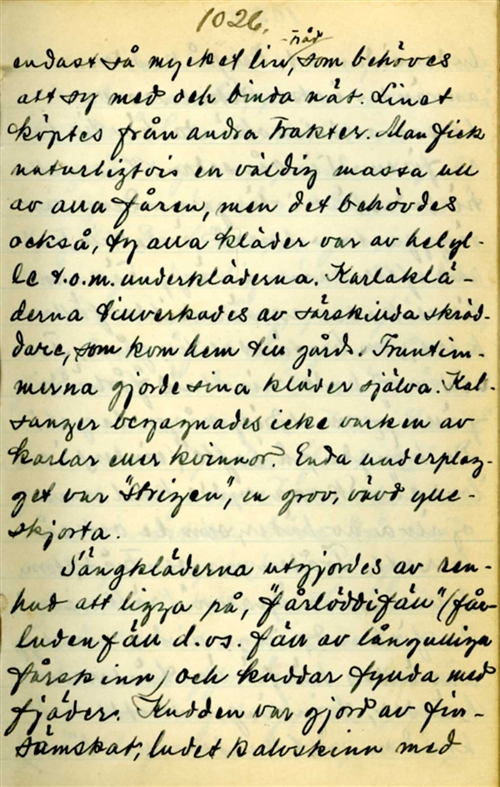 1026.
endast så mycket lin,tråd som behöves
att sy med och binda nät. Linet
köptes från andra trakter. Man fick
naturligtvis en väldig massa ull
av alla fåren, men det behövdes
också, ty alla kläder var av helyl-
le t.o.m. underkläderna. Karlaklä-
derna tillverkades av särskilda skräd-
dare, som kom hem till gårds. Fruntim-
merna gjorde sina kläder själva. Kal-
songer begagnades icke varken av
karlar eller kvinnor. Enda underplag-
get var "strigen", en grov, vävd ylle-
skjorta.
Sängkläderna utgjordes av ren-
hud att ligga på, "fårlöddifäll" (får-
ludenfäll d.vs. fäll av långulliga
fårskinn) och kuddar fyllda med
fjäder. Kudden var gjord av fin-
sämskat, ludet kalvskinn med